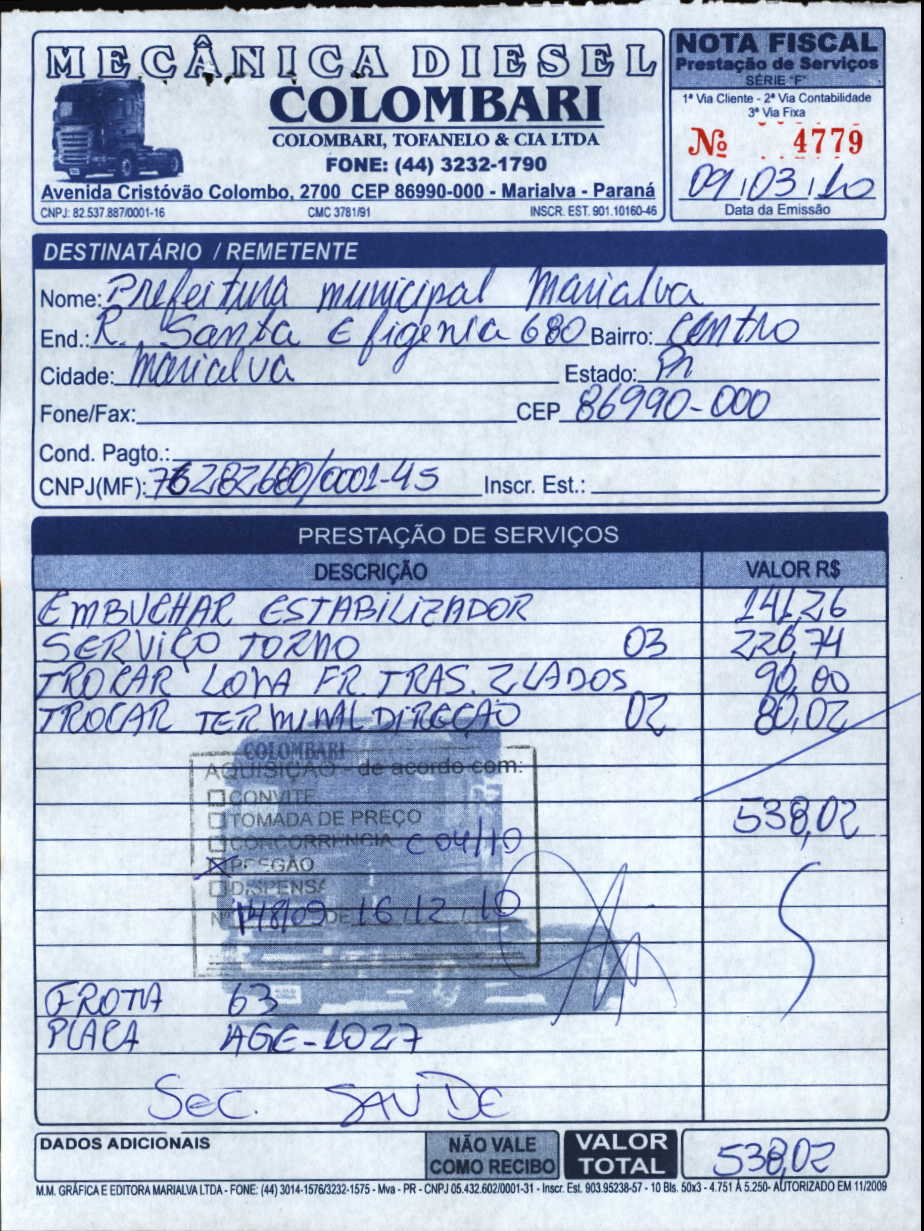 MECÂNICA DIESEL
COLOMBARI
COLOMBARI, TOFANELO & CIA LTDA
FONE: (44) 3232-1790
Avenida Cristóvão Colombo, 2700 CEP 86990-000 - Marialva - Paraná
CNPJ: 82.537.887/0001-16 CMC 3781/91 INSCR. EST. 901.10160-46
NOTA FISCAL
Prestação de Serviços
SÉRIE "F"
1ª Via Cliente - 2ª Via Contabilidade
3ª Via Fixa
Nº 4779
09/03/10
Data da Emissão
DESTINATÁRIO / REMETENTE
Nome: Prefeitura municipal Marialva
End.: R. Santa Efigenia 680 Bairro: Centro
Cidade: Marialva Estado: Pr
Fone/Fax: CEP 86990-000
Cond. Pagto.:
CNPJ(MF): 76282680/0001-45 Inscr. Est.:
PRESTAÇÃO DE SERVIÇOS
DESCRIÇÃO VALOR R$
EMBUCHAR ESTABILIZADOR 141,26
SERVIÇO TORNO 03 226,74
TROCAR LONA FR TRAS. 2 LADOS 90,00
TROCAR TERMINAL DIREÇÃO 02 80,02
COLOMBARI
AQUISIÇÃO - de acordo com:
CONVITE
TOMADA DE PREÇO 538,02
CONCORRENCIA C 04/10
PREGÃO
DISPENSA
Nº 148/09 DE 16/12/10
FROTA 63
PLACA AGE-1027
SEC. SAUDE
DADOS ADICIONAIS
NÃO VALE
COMO RECIBO
VALOR
TOTAL
538,02
M.M. GRÁFICA E EDITORA MARIALVA LTDA - FONE: (44) 3014-1576/3232-1575 - Mva - PR - CNPJ 05.432.602/0001-31 - Inscr. Est. 903.95238-57 - 10 Bls. 50x3 - 4.751 À 5.250- AUTORIZADO EM 11/2009